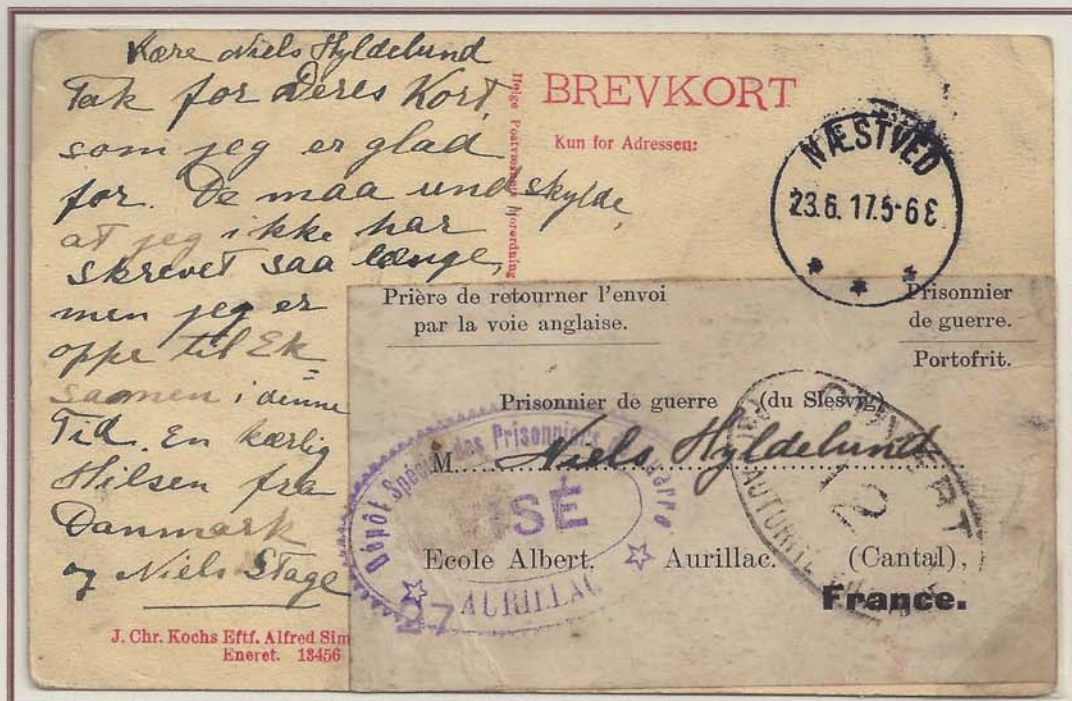 Kære Niels Hyldelund
Tak for Deres Kort,
som jeg er glad
for. De maa undskylde,
at jeg ikke har
skrevet saa længe,
men jeg er
oppe til Ek=
samen i denne
Tid. En kærlig
Hilsen fra
Danmark
og Niels Stage
J. Chr. Kochs Eftf. Alfred Sim
Eneret. 13456
Ifølge Postvæsenets Forordning
BREVKORT
Kun for Adressen:
NÆSTVED
23.6.17.5-6E
Prière de retourner l'envoi
par la voie anglaise.
Prisonnier
de guerre.
Portofrit.
Prisonnier de guerre (du Slesvig)
M. Niels Hyldelund
Ecole Albert. Aurillac. (Cantal),
France.
Dépôt Spécial des Prisonniers de Guerre
VISÉ
AURILLAC
27
OUVERT
PAR
AUTORITÉ
12